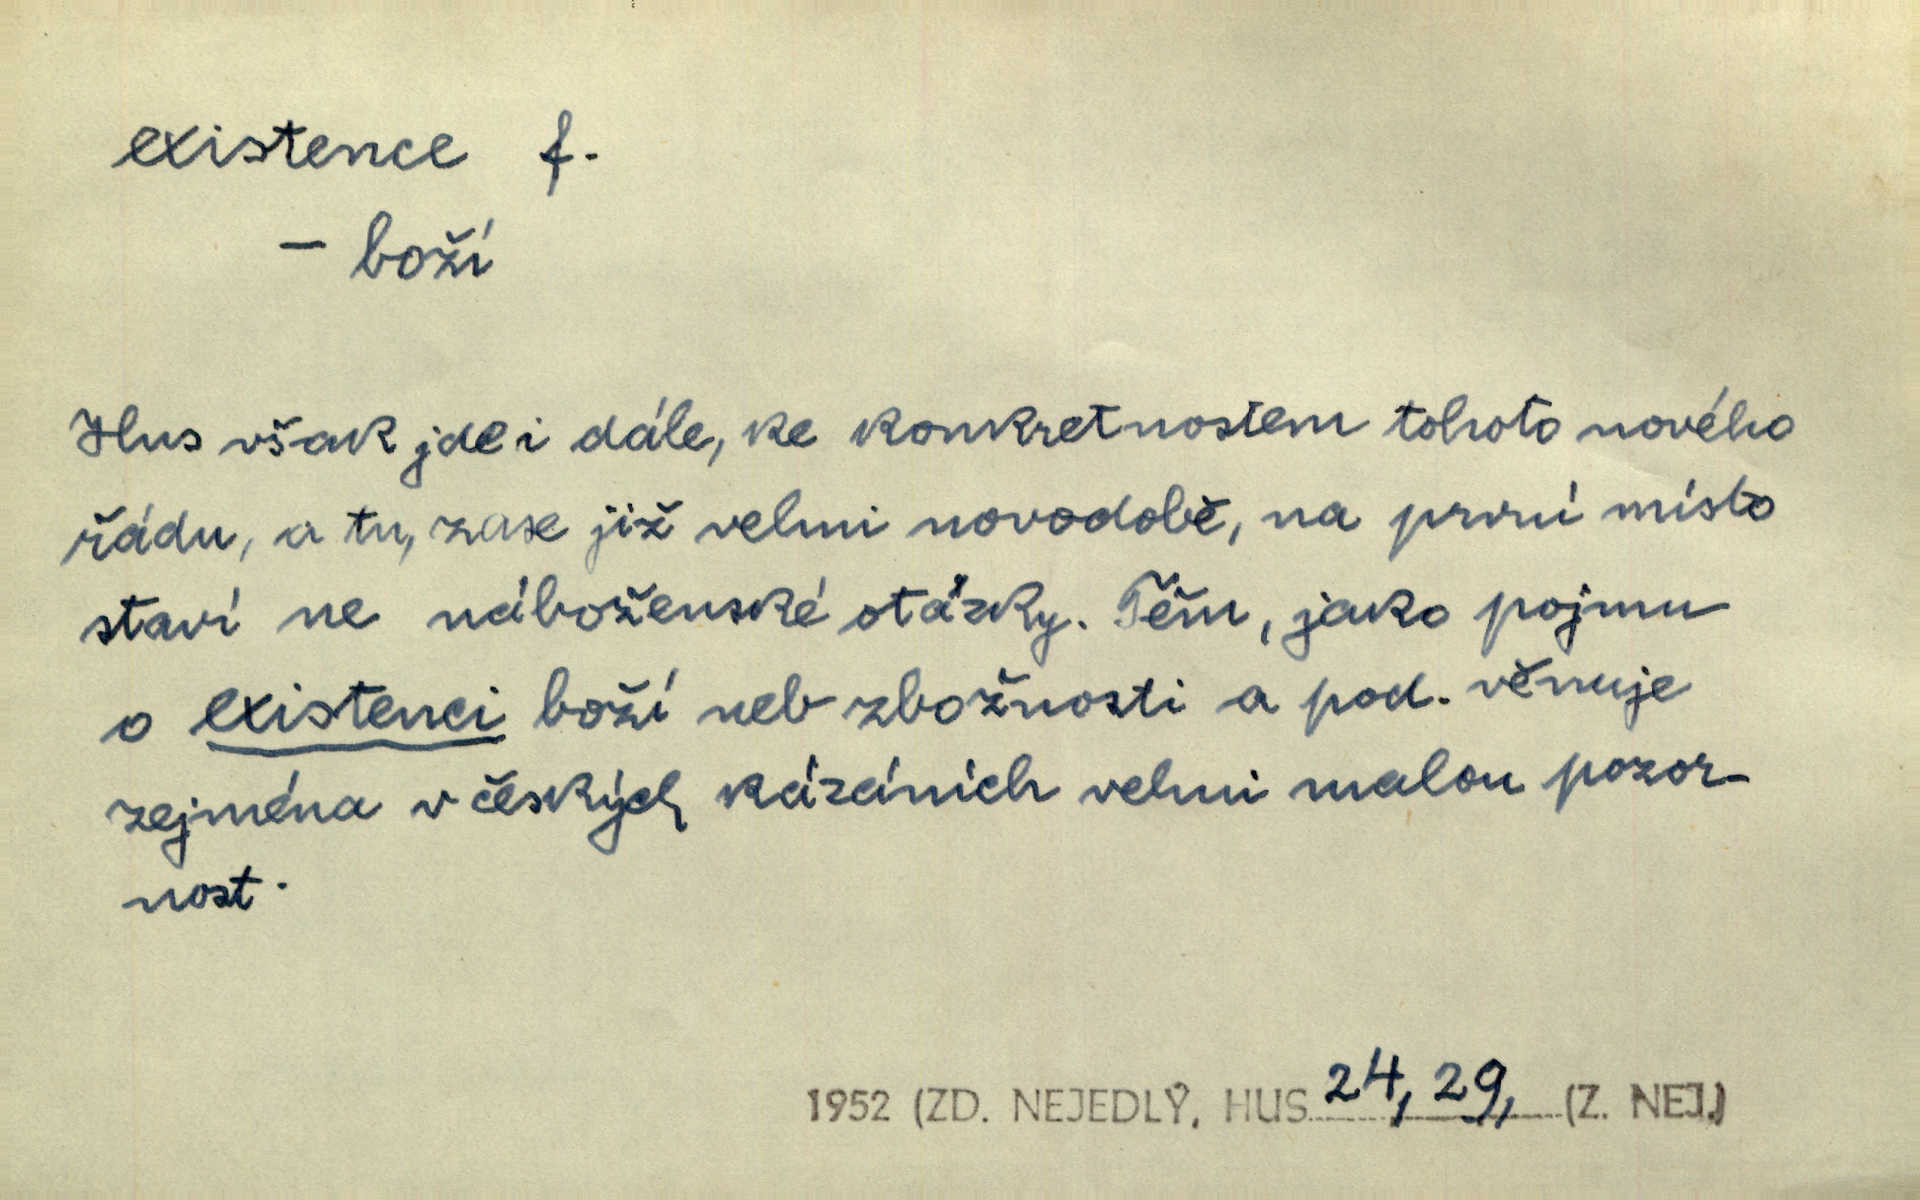 existence f.
– boží
Hus však jde i dále, ke konkretnostem tohoto nového
řádu, a tu, zase již velmi novodobě, na první místo
staví ne náboženské otázky. Těm, jako pojmu
o existenci boží neb zbožnosti a pod. věnuje
zejména v českých kázáních velmi malou pozor-
nost.
1952 (ZD. NEJEDLÝ, HUS 24, 29, (Z. NEJ.)